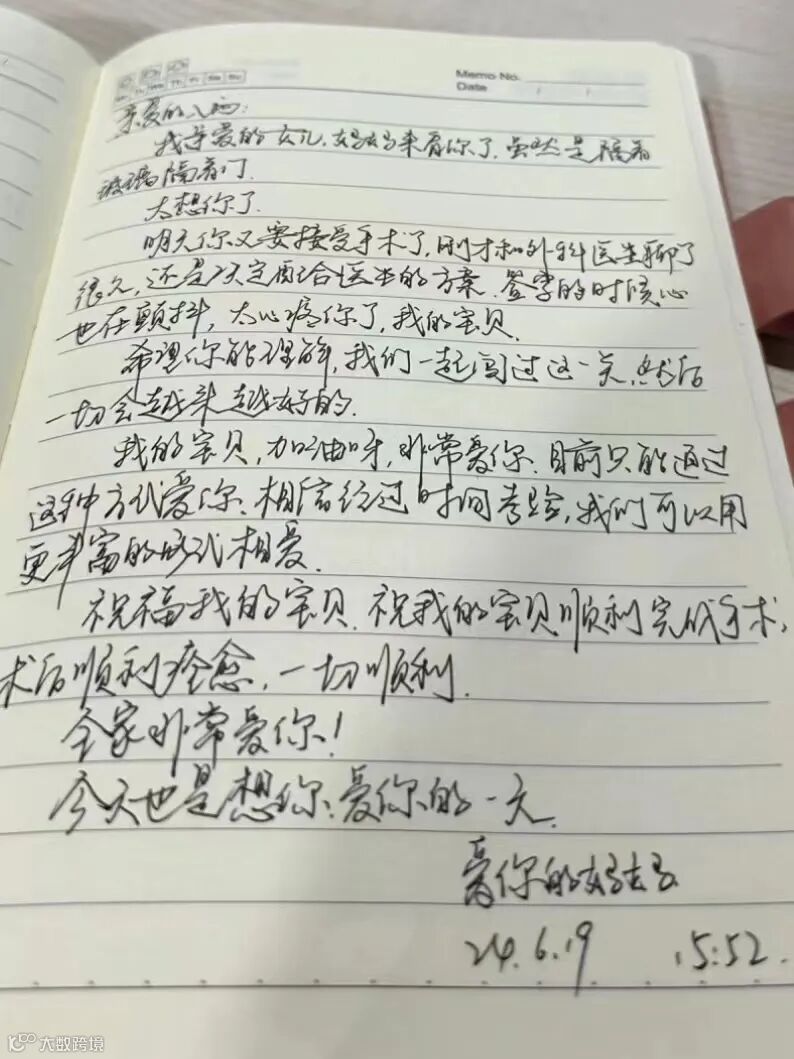 Memo No.
Date / /
Mo Tu We Th Fr Sa Su
亲爱的八両:
我亲爱的女儿,妈妈来看你了,虽然是隔着
玻璃隔着门.
太想你了.
明天你又要接受手术了,刚才和外科医生聊了
很久,还是决定配合医生的方案.签字的时候心
也在颤抖,太心疼你了,我的宝贝.
希望你能理解,我们一起闯过这一关,然后
一切会越来越好的.
我的宝贝,加油呀,非常爱你.目前只能通过
这种方式爱你.相信经过时间考验,我们可以用
更丰富的形式相爱.
祝福我的宝贝.祝我的宝贝顺利完成手术,
术后顺利痊愈,一切顺利.
全家非常爱你!
今天也是想你、爱你的一天.
爱你的妈妈
24.6.19 15:52
大数跨境